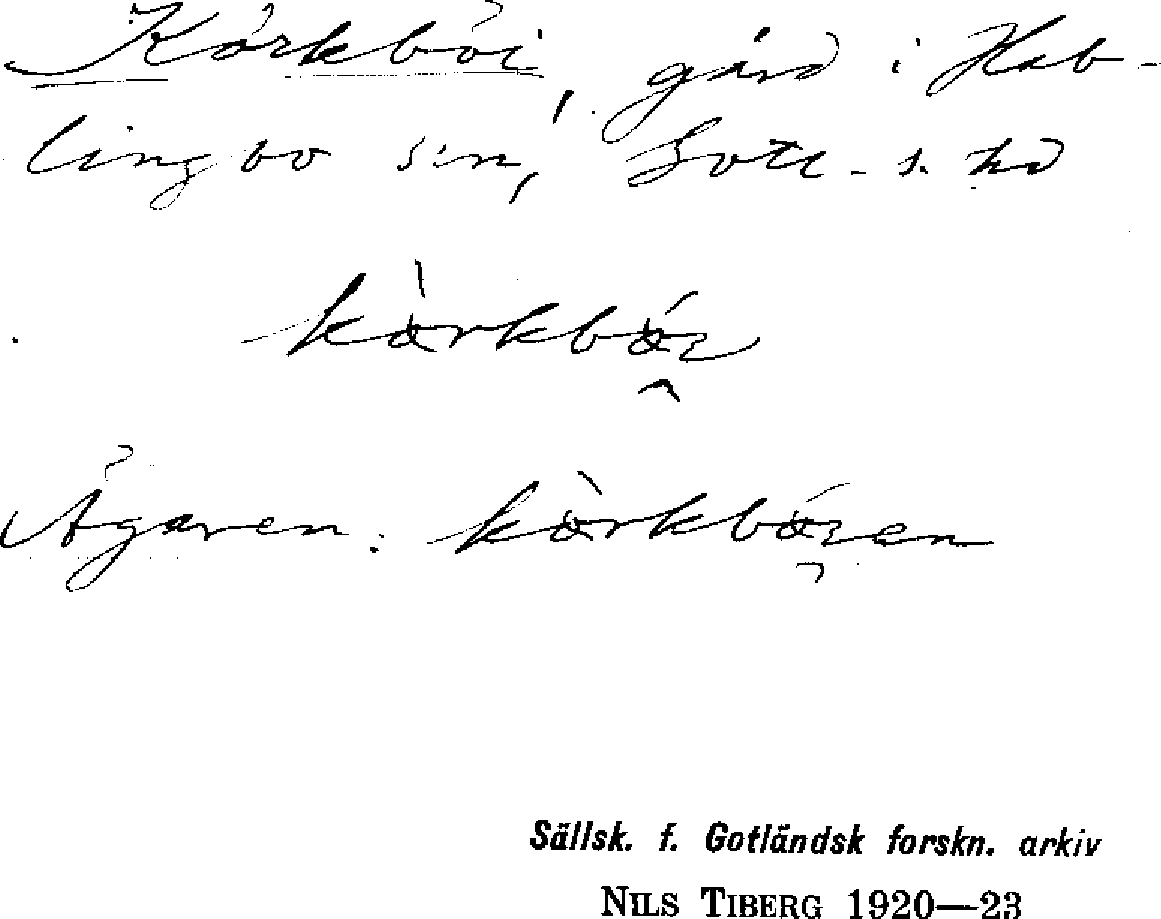 Kórkbói, gård i Hab-
lingbo s:n, Gotl. s. hd
kòrkbói
Ägaren: kòrkbóien
Sällsk. f. Gotländsk forskn. arkiv
NILS TIBERG 1920—23